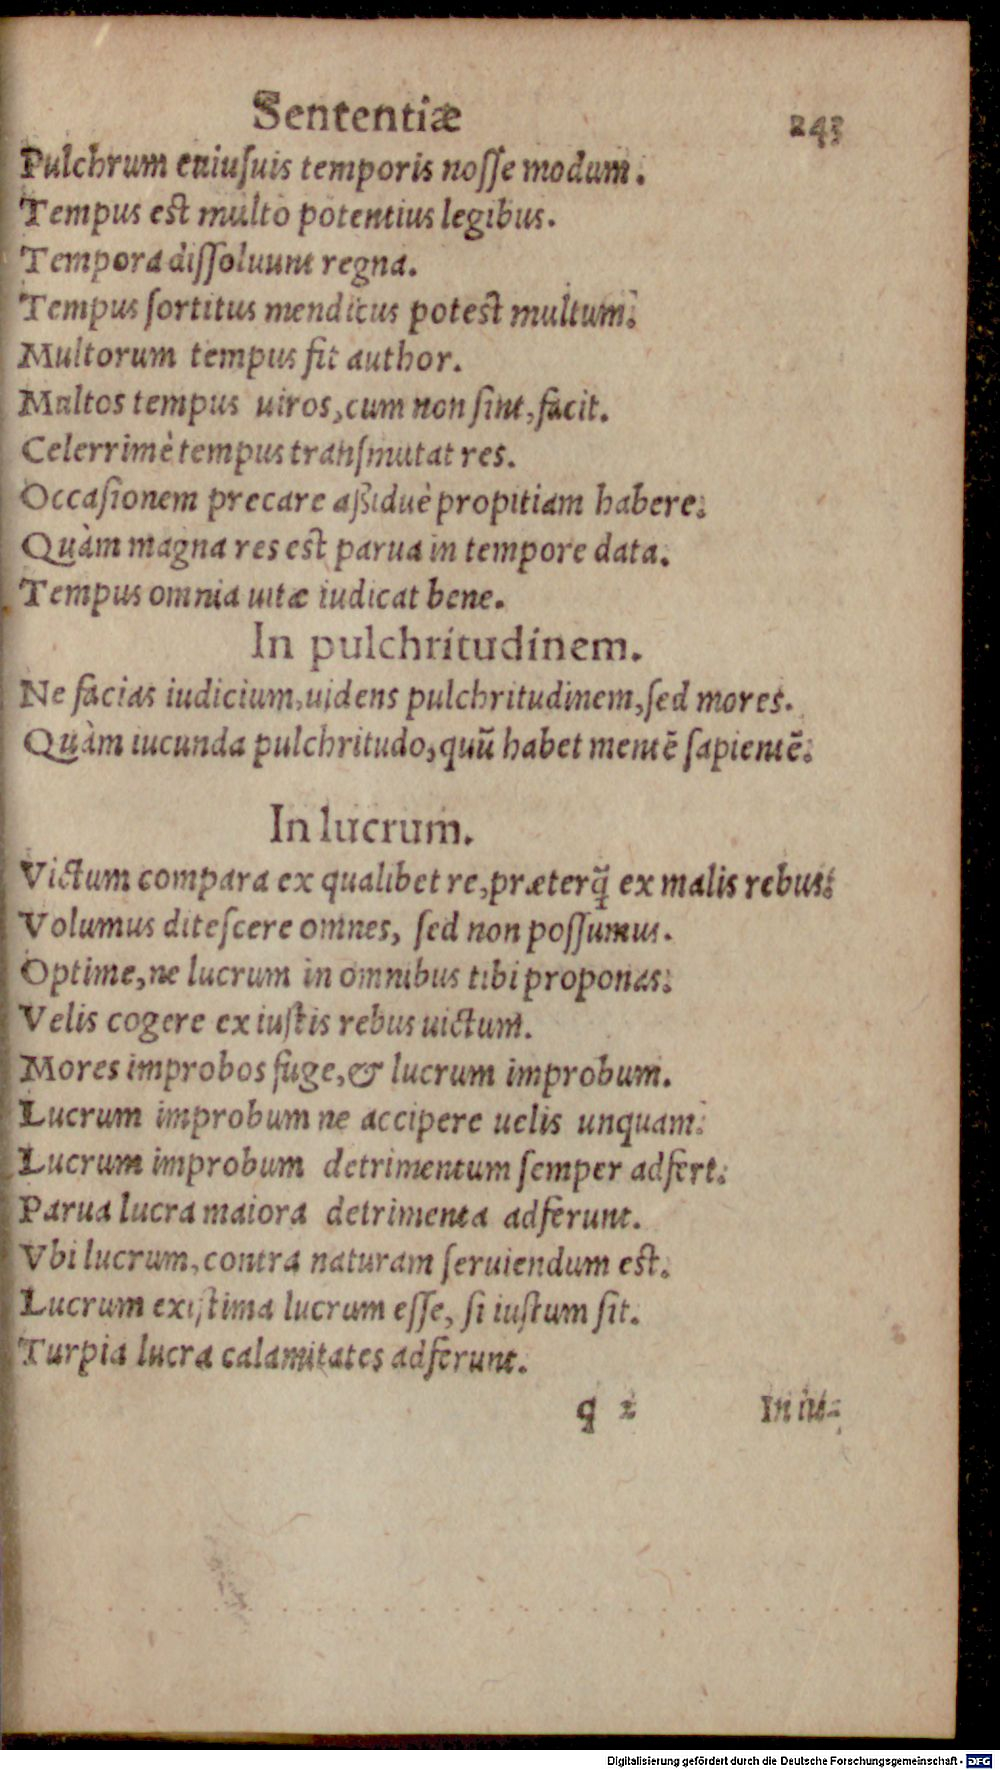 Sententiæ 243
Pulchrum cuiuſuis temporis noſſe modum.
Tempus est multo potentius legibus.
Tempora diſſoluunt regna.
Tempus ſortitus mendicus potest multum.
Multorum tempus fit author.
Multos tempus uiros, cum non ſint, facit.
Celerrimè tempus tranſmutat res.
Occaſionem precare aßiduè propitiam habere.
Quàm magna res est parua in tempore data.
Tempus omnia uitæ iudicat bene.
In pulchritudinem.
Ne facias iudicium, uidens pulchritudinem, ſed mores.
Quàm iucunda pulchritudo, quũ habet mentẽ ſapientẽ.
In lucrum.
Victum compara ex qualibet re, præterq̃ ex malis rebus.
Volumus diteſcere omnes, ſed non poſſumus.
Optime, ne lucrum in omnibus tibi proponas.
Velis cogere ex iuſtis rebus uictum.
Mores improbos fuge, & lucrum improbum.
Lucrum improbum ne accipere uelis unquam.
Lucrum improbum detrimentum ſemper adfert.
Parua lucra maiora detrimenta adferunt.
Vbi lucrum, contra naturam ſeruiendum est.
Lucrum exiſtima lucrum eſſe, ſi iuſtum ſit.
Turpia lucra calamitates adferunt.
q 2
Digitalisierung gefördert durch die Deutsche Forschungsgemeinschaft - DFG